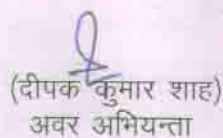 (दीपक कुमार शाह)
अवर अभियन्ता